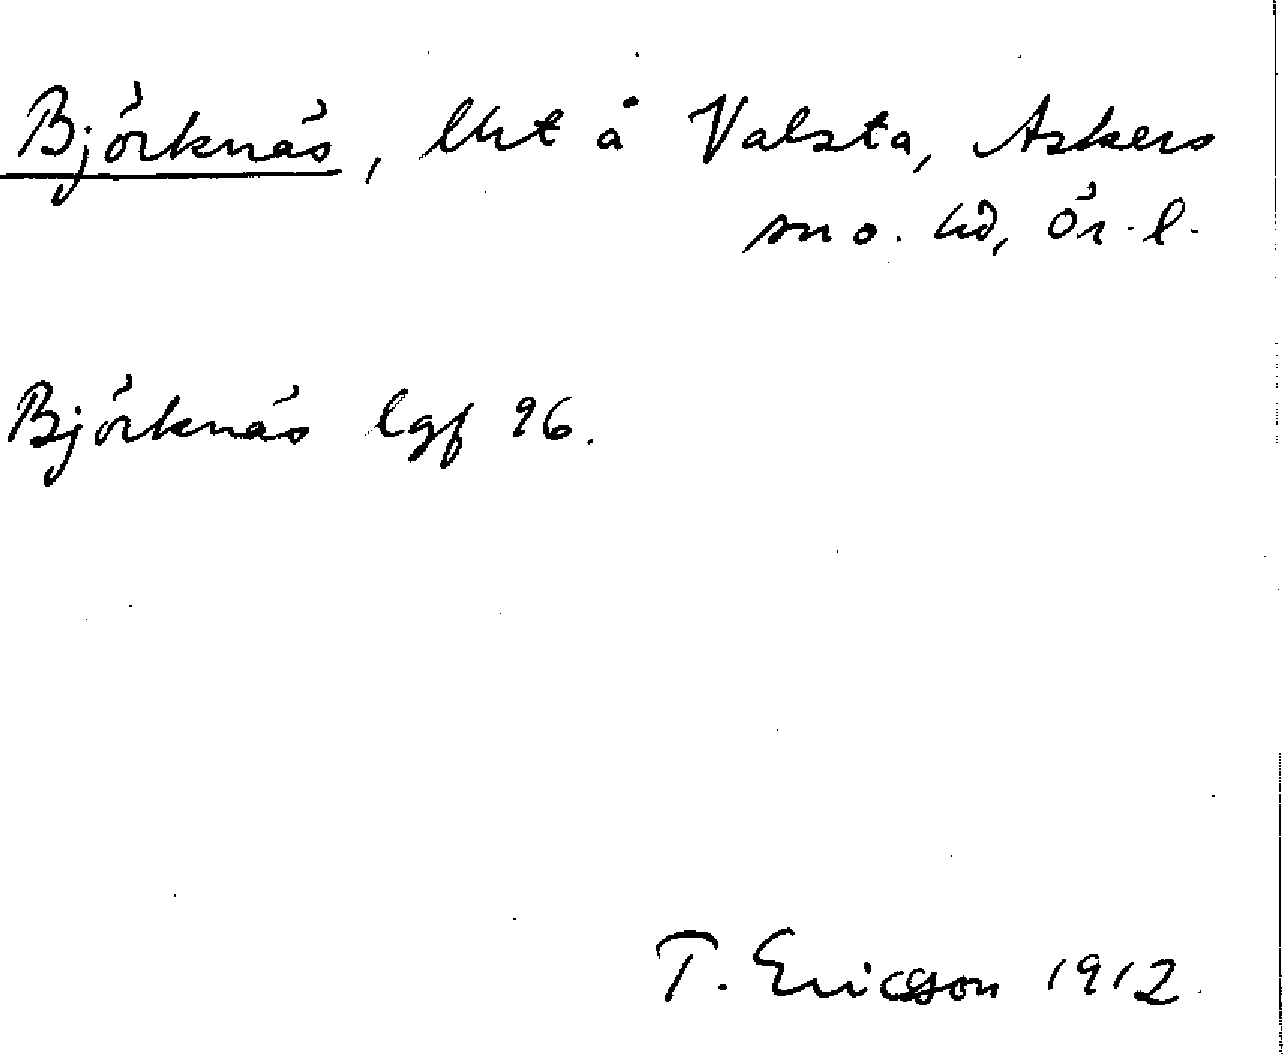 Björknäs, lht å Valsta, Askers
sn o. hd, Ör. l.
Björknäs lgf 96.
T. Ericsson 1912